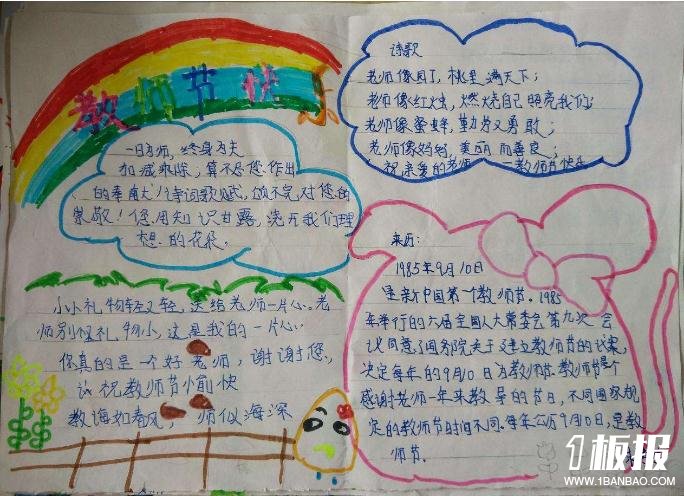 教师节快乐
一日为师，终身为夫
加减乘除，算不尽您作出
的奉献！诗词歌赋，颂不完对您的
崇敬！您用知识甘露，浇开我们理
想的花朵。
小小礼物轻又轻，送给老师一片心。老
师别怪礼物小，这是我的一片心。
您真的是一个好老师，谢谢您。
议祝教师节愉快
教诲如春风，师似海深
诗歌
老师像园丁，桃里满天下；
老师像红烛，燃烧自己照亮我们；
老师像蜜蜂，勤劳又勇敢；
老师像妈妈，美丽而善良；
祝亲爱的老师 教师节快乐
来历：
1985年9月10日
是新中国第一个教师节。1985
年举行的六届全国人大常委会第九次会
议同意了国务院关于建立教师节的议案，
决定每年的9月10日为教师节。教师节是个
感谢老师一年来教导的节日，不同国家规
定的教师节时间不同。每年公历9月10日，是教
师节。
1板报
WWW.1BANBAO.COM